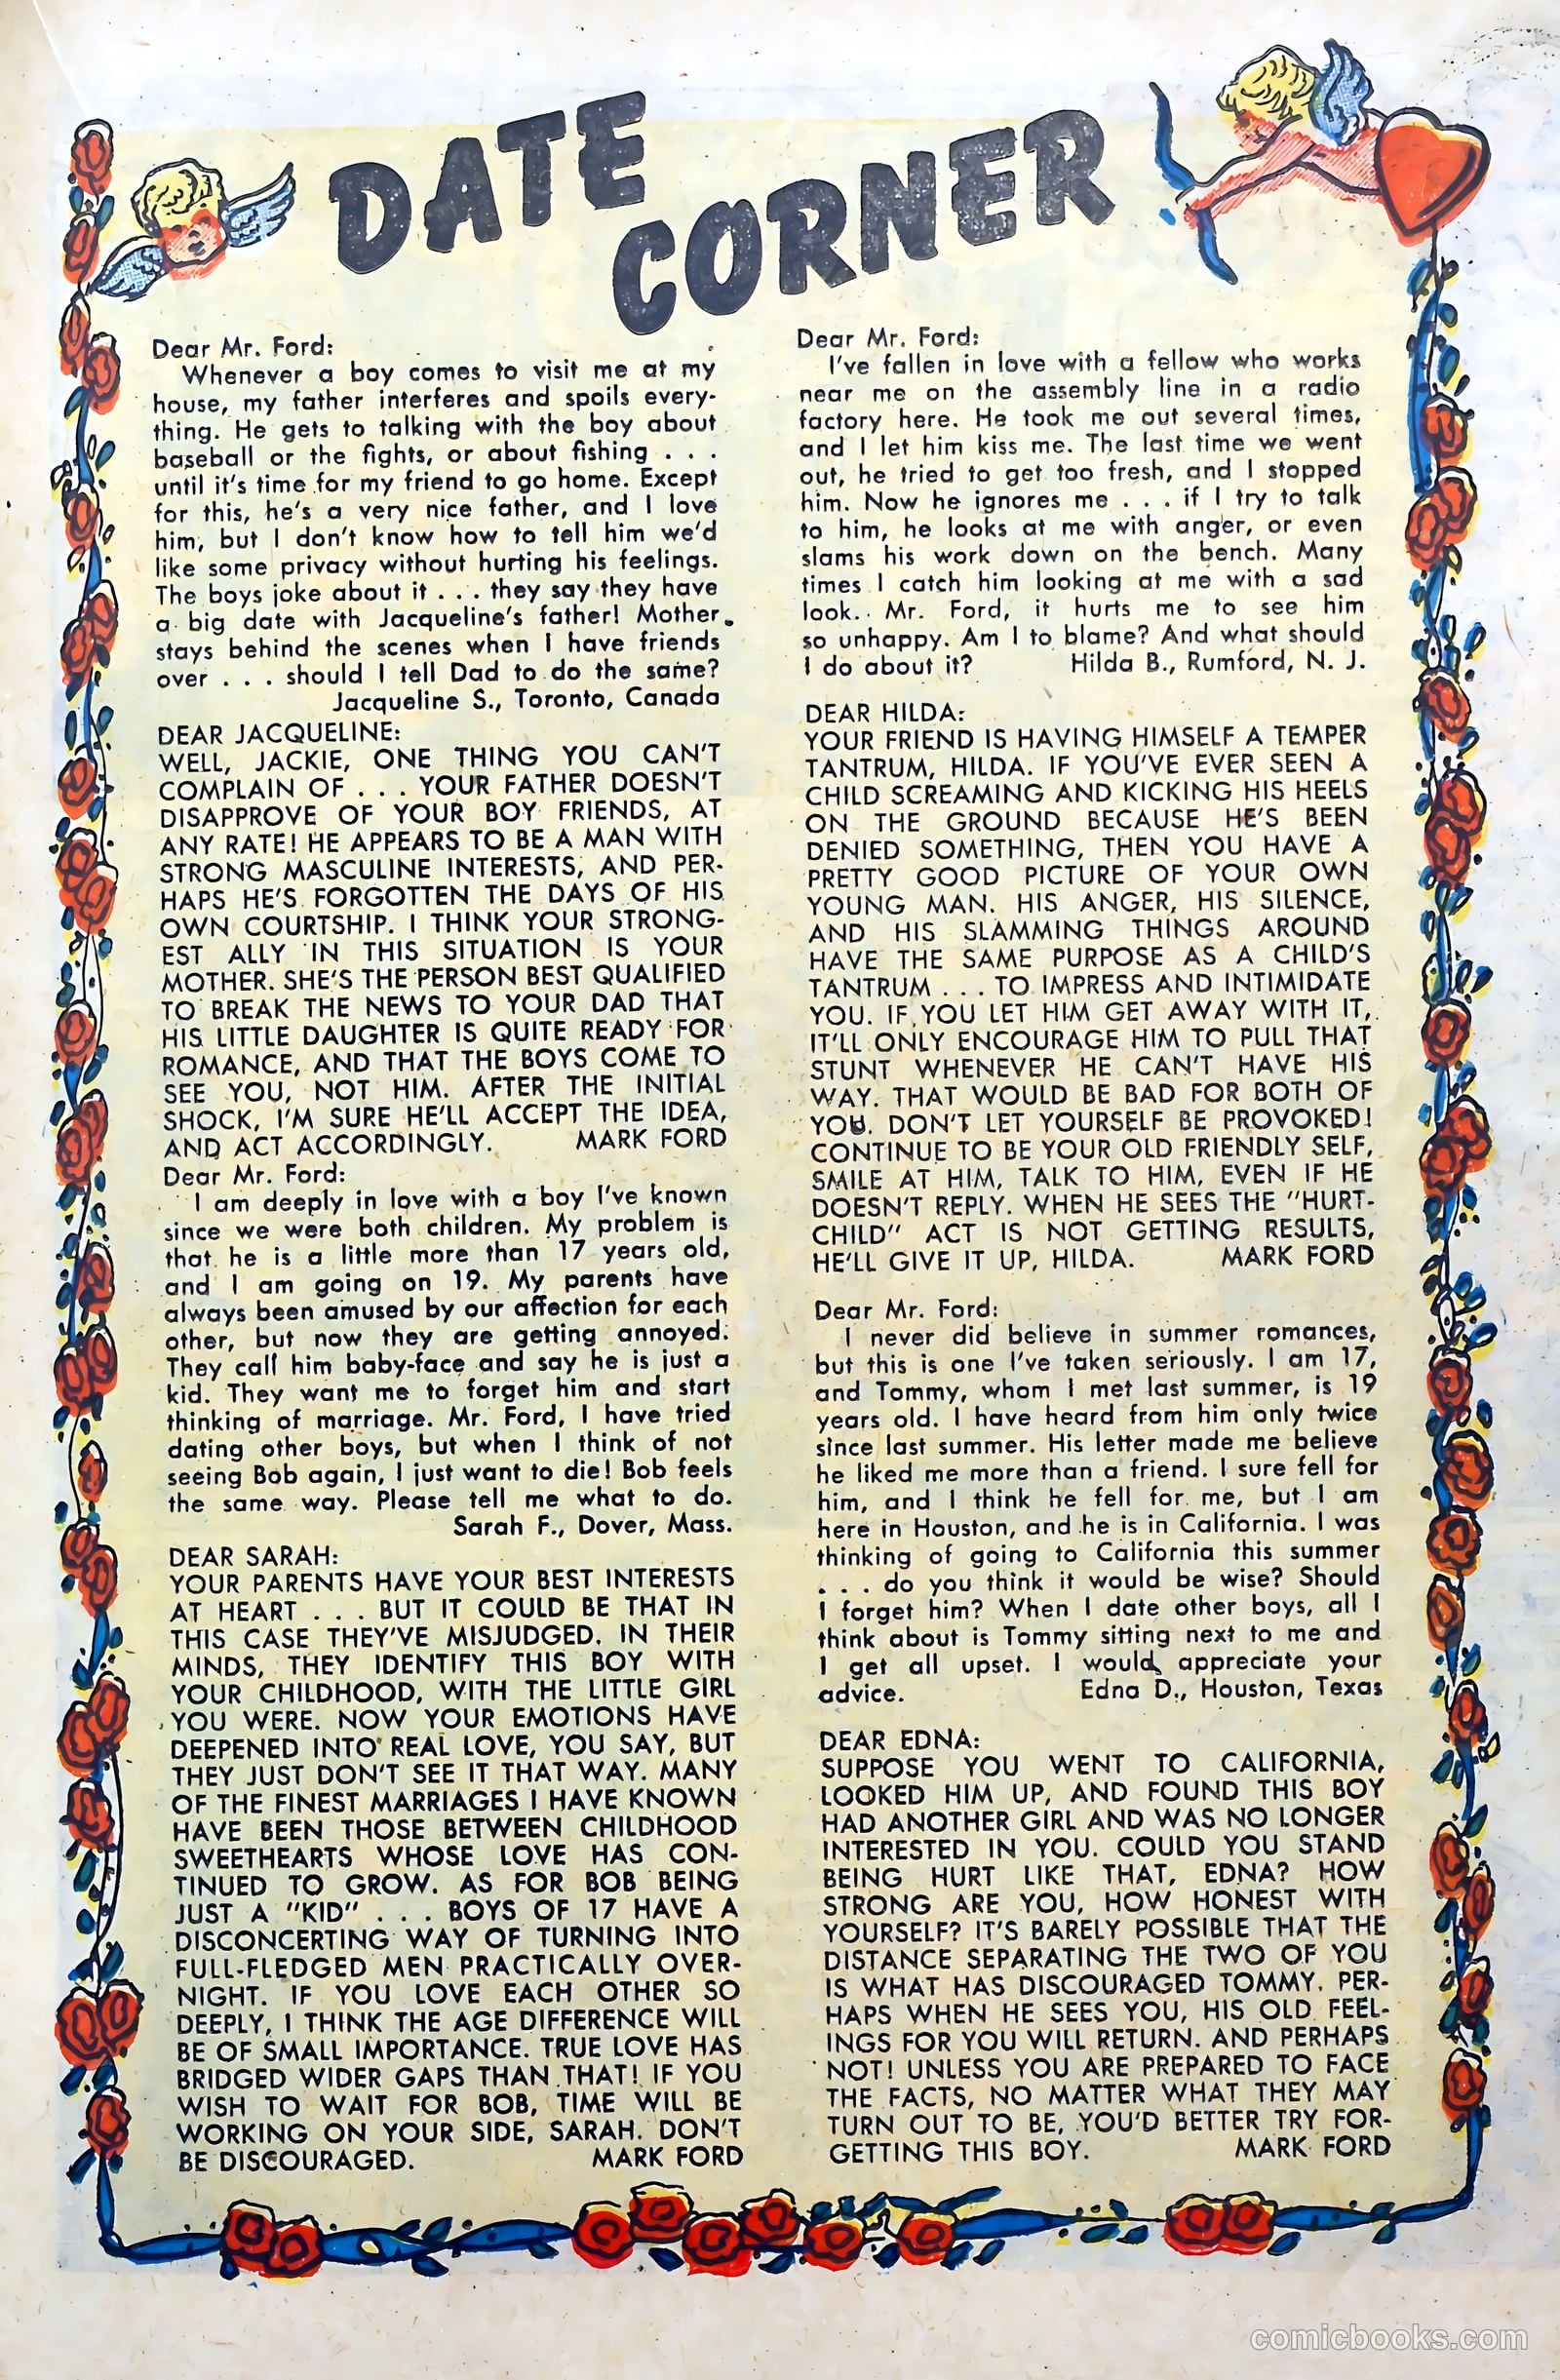 DATE
CORNER
Dear Mr. Ford:
Whenever a boy comes to visit me at my
house, my father interferes and spoils every-
thing. He gets to talking with the boy about
baseball or the fights, or about fishing . . .
until it's time for my friend to go home. Except
for this, he's a very nice father, and I love
him, but I don't know how to tell him we'd
like some privacy without hurting his feelings.
The boys joke about it . . . they say they have
a big date with Jacqueline's father! Mother
stays behind the scenes when I have friends
over . . . should I tell Dad to do the same?
Jacqueline S., Toronto, Canada
DEAR JACQUELINE:
WELL, JACKIE, ONE THING YOU CAN'T
COMPLAIN OF . . . YOUR FATHER DOESN'T
DISAPPROVE OF YOUR BOY FRIENDS, AT
ANY RATE! HE APPEARS TO BE A MAN WITH
STRONG MASCULINE INTERESTS, AND PER-
HAPS HE'S FORGOTTEN THE DAYS OF HIS
OWN COURTSHIP. I THINK YOUR STRONG-
EST ALLY IN THIS SITUATION IS YOUR
MOTHER. SHE'S THE PERSON BEST QUALIFIED
TO BREAK THE NEWS TO YOUR DAD THAT
HIS LITTLE DAUGHTER IS QUITE READY FOR
ROMANCE, AND THAT THE BOYS COME TO
SEE YOU, NOT HIM. AFTER THE INITIAL
SHOCK, I'M SURE HE'LL ACCEPT THE IDEA,
AND ACT ACCORDINGLY. MARK FORD
Dear Mr. Ford:
I am deeply in love with a boy I've known
since we were both children. My problem is
that he is a little more than 17 years old,
and I am going on 19. My parents have
always been amused by our affection for each
other, but now they are getting annoyed.
They call him baby-face and say he is just a
kid. They want me to forget him and start
thinking of marriage. Mr. Ford, I have tried
dating other boys, but when I think of not
seeing Bob again, I just want to die! Bob feels
the same way. Please tell me what to do.
Sarah F., Dover, Mass.
DEAR SARAH:
YOUR PARENTS HAVE YOUR BEST INTERESTS
AT HEART . . . BUT IT COULD BE THAT IN
THIS CASE THEY'VE MISJUDGED. IN THEIR
MINDS, THEY IDENTIFY THIS BOY WITH
YOUR CHILDHOOD, WITH THE LITTLE GIRL
YOU WERE. NOW YOUR EMOTIONS HAVE
DEEPENED INTO REAL LOVE, YOU SAY, BUT
THEY JUST DON'T SEE IT THAT WAY. MANY
OF THE FINEST MARRIAGES I HAVE KNOWN
HAVE BEEN THOSE BETWEEN CHILDHOOD
SWEETHEARTS WHOSE LOVE HAS CON-
TINUED TO GROW. AS FOR BOB BEING
JUST A "KID" . . . BOYS OF 17 HAVE A
DISCONCERTING WAY OF TURNING INTO
FULL-FLEDGED MEN PRACTICALLY OVER-
NIGHT. IF YOU LOVE EACH OTHER SO
DEEPLY, I THINK THE AGE DIFFERENCE WILL
BE OF SMALL IMPORTANCE. TRUE LOVE HAS
BRIDGED WIDER GAPS THAN THAT! IF YOU
WISH TO WAIT FOR BOB, TIME WILL BE
WORKING ON YOUR SIDE, SARAH. DON'T
BE DISCOURAGED. MARK FORD
Dear Mr. Ford:
I've fallen in love with a fellow who works
near me on the assembly line in a radio
factory here. He took me out several times,
and I let him kiss me. The last time we went
out, he tried to get too fresh, and I stopped
him. Now he ignores me . . . if I try to talk
to him, he looks at me with anger, or even
slams his work down on the bench. Many
times I catch him looking at me with a sad
look. Mr. Ford, it hurts me to see him
so unhappy. Am I to blame? And what should
I do about it? Hilda B., Rumford, N. J.
DEAR HILDA:
YOUR FRIEND IS HAVING HIMSELF A TEMPER
TANTRUM, HILDA. IF YOU'VE EVER SEEN A
CHILD SCREAMING AND KICKING HIS HEELS
ON THE GROUND BECAUSE HE'S BEEN
DENIED SOMETHING, THEN YOU HAVE A
PRETTY GOOD PICTURE OF YOUR OWN
YOUNG MAN. HIS ANGER, HIS SILENCE,
AND HIS SLAMMING THINGS AROUND
HAVE THE SAME PURPOSE AS A CHILD'S
TANTRUM . . . TO IMPRESS AND INTIMIDATE
YOU. IF YOU LET HIM GET AWAY WITH IT,
IT'LL ONLY ENCOURAGE HIM TO PULL THAT
STUNT WHENEVER HE CAN'T HAVE HIS
WAY. THAT WOULD BE BAD FOR BOTH OF
YOU. DON'T LET YOURSELF BE PROVOKED!
CONTINUE TO BE YOUR OLD FRIENDLY SELF,
SMILE AT HIM, TALK TO HIM, EVEN IF HE
DOESN'T REPLY. WHEN HE SEES THE "HURT-
CHILD" ACT IS NOT GETTING RESULTS,
HE'LL GIVE IT UP, HILDA. MARK FORD
Dear Mr. Ford:
I never did believe in summer romances,
but this is one I've taken seriously. I am 17,
and Tommy, whom I met last summer, is 19
years old. I have heard from him only twice
since last summer. His letter made me believe
he liked me more than a friend. I sure fell for
him, and I think he fell for me, but I am
here in Houston, and he is in California. I was
thinking of going to California this summer
. . . do you think it would be wise? Should
I forget him? When I date other boys, all I
think about is Tommy sitting next to me and
I get all upset. I would appreciate your
advice. Edna D., Houston, Texas
DEAR EDNA:
SUPPOSE YOU WENT TO CALIFORNIA,
LOOKED HIM UP, AND FOUND THIS BOY
HAD ANOTHER GIRL AND WAS NO LONGER
INTERESTED IN YOU. COULD YOU STAND
BEING HURT LIKE THAT, EDNA? HOW
STRONG ARE YOU, HOW HONEST WITH
YOURSELF? IT'S BARELY POSSIBLE THAT THE
DISTANCE SEPARATING THE TWO OF YOU
IS WHAT HAS DISCOURAGED TOMMY. PER-
HAPS WHEN HE SEES YOU, HIS OLD FEEL-
INGS FOR YOU WILL RETURN. AND PERHAPS
NOT! UNLESS YOU ARE PREPARED TO FACE
THE FACTS, NO MATTER WHAT THEY MAY
TURN OUT TO BE, YOU'D BETTER TRY FOR-
GETTING THIS BOY. MARK FORD
comicbooks.com